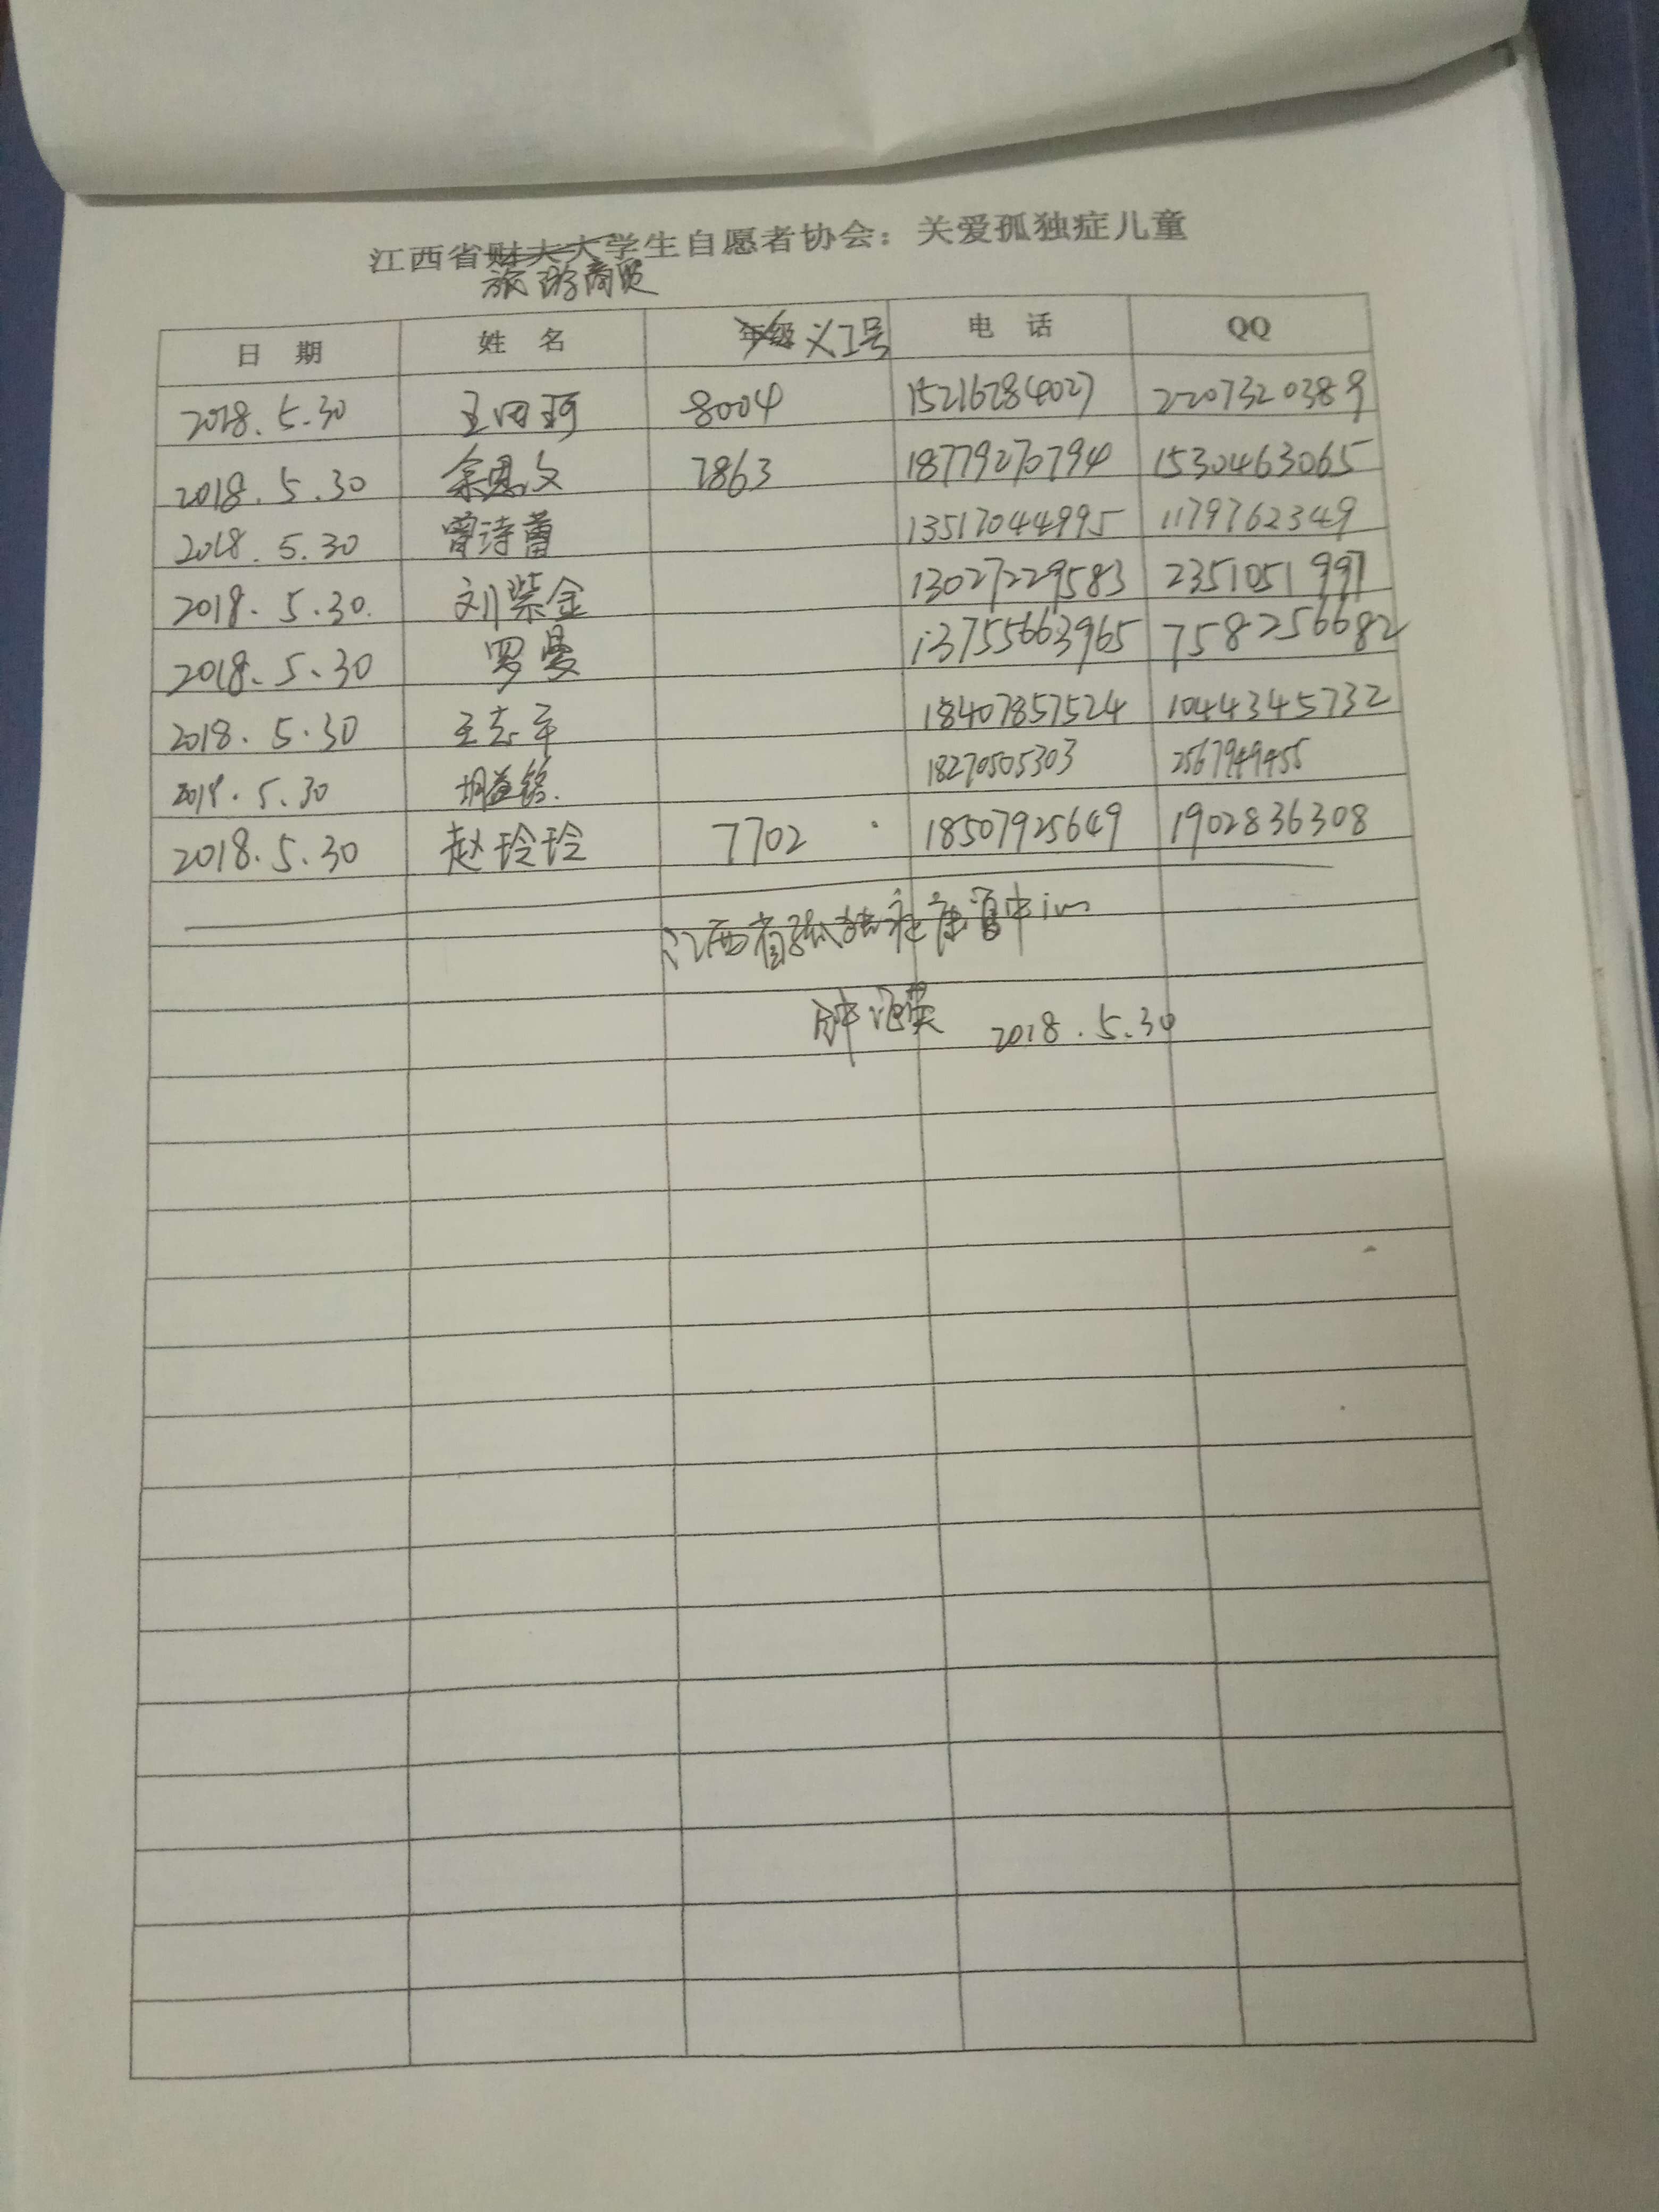 江西省财大大学生自愿者协会：关爱孤独症儿童
旅游商贸
日 期 姓 名 年级 义工号 电 话 QQ
2018.5.30 8004 15216784027 2207320389
2018.5.30 余思文 7863 18779270794 1530463065
2018.5.30 曾诗蕾 13517044995 1179762349
2018.5.30. 刘紫金 13027229583 2351051991
2018.5.30 罗曼 13755663965 758256682
2018.5.30 王志平 18407857524 1044345732
2018.5.30 胡益铭. 18270505303 2567949455
2018.5.30 赵玲玲 7702 18507925649 1902836308
江西省孤独症康复中心
2018.5.30